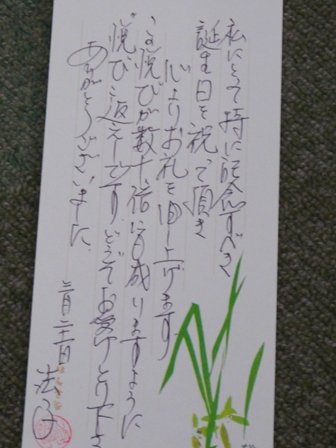 私にとって特に記念すべき
誕生日を祝って頂き
心よりお礼を申し上げます
この悦びが数十倍にも成りますように
悦び返えしです どうぞお受けとり下さ
ありがとうございました
二月二十一日